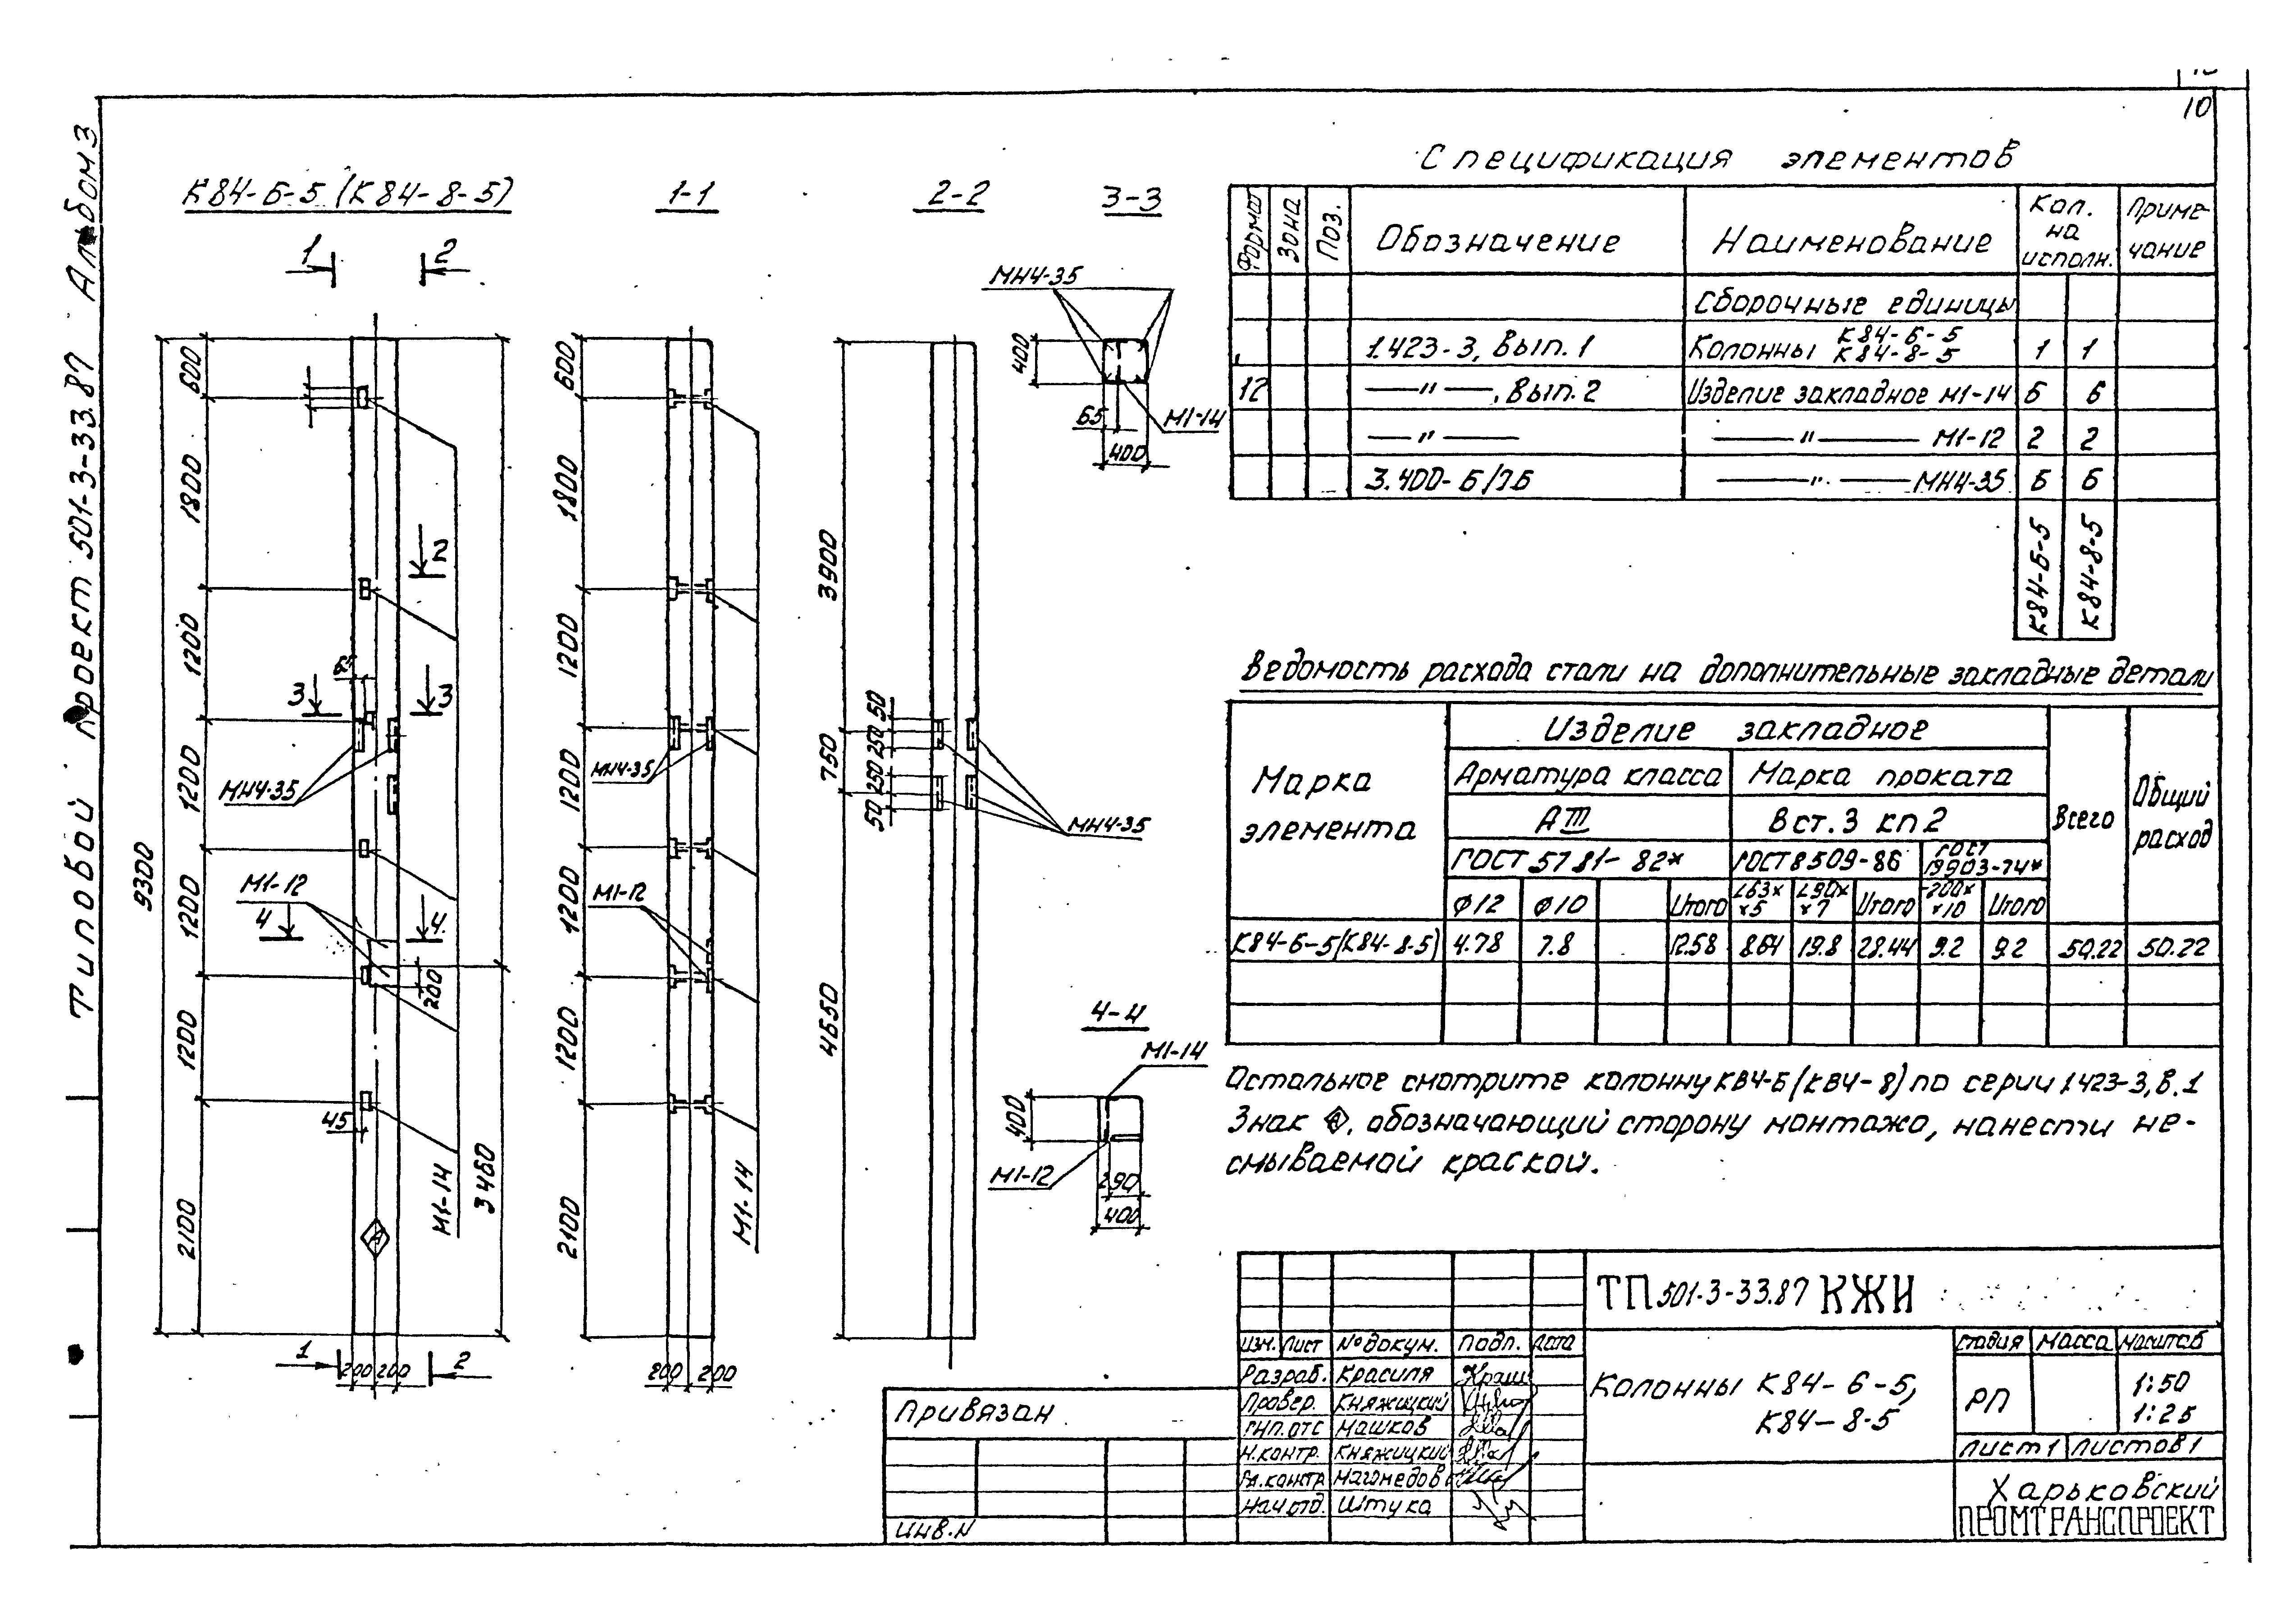 10
Типовой проект 501-3-33.87 Альбом 3
К84-6-5 (К84-8-5)
1-1
2-2
3-3
1
2
600
1800
1200
1200
1200
1200
2100
9300
2
65
3
3
МН4-35
М1-12
4
4
200
45
М1-14
3460
А
1
200
200
2
600
1800
1200
1200
1200
1200
2100
МН4-35
М1-12
М1-14
200
200
3900
750
4650
50
250
250
50
МН4-35
МН4-35
400
65
М1-14
400
4-4
М1-14
400
М1-12
290
400
Спецификация элементов
Формат
Зона
Поз.
Обозначение
Наименование
Кол. на исполн.
Примечание
Сборочные единицы
1.423-3, Вып. 1 Колонны К84-6-5 К84-8-5 1 1
12 —"—, Вып. 2 Изделие закладное М1-14 6 6
—"— —"— М1-12 2 2
3.400-6/76 —"— МН4-35 6 6
К84-6-5
К84-8-5
Ведомость расхода стали на дополнительные закладные детали
Марка элемента
Изделие закладное
Всего
Общий расход
Арматура класса
Марка проката
АIII
Вст.3 кп2
ГОСТ 5781-82*
ГОСТ 8509-86
ГОСТ 19903-74*
ϕ12 ϕ10 Итого L63x x5 L90x x7 Итого -200x x10 Итого
К84-6-5(К84-8-5) 4.78 7.8 12.58 8.64 19.8 28.44 9.2 9.2 50.22 50.22
Остальное смотрите колонну К84-6 (К84-8) по серии 1.423-3, в.1
Знак А, обозначающий сторону монтажа, нанести не-
смываемой краской.
ТП 501-3-33.87 КЖИ
Изм. Лист № докум. Подп. Дата
Разраб. Красиля
Провер. Княжицкий
ГИП.ОТС Машков
Н.контр. Княжицкий
Гл.констр Магомедов
Нач.отд. Штука
Колонны К84-6-5,
К84-8-5
Стадия Масса Масштаб
РП
1:50
1:25
Лист 1 Листов 1
Харьковский
ПРОМТРАНСПРОЕКТ
Привязан
Инв.N